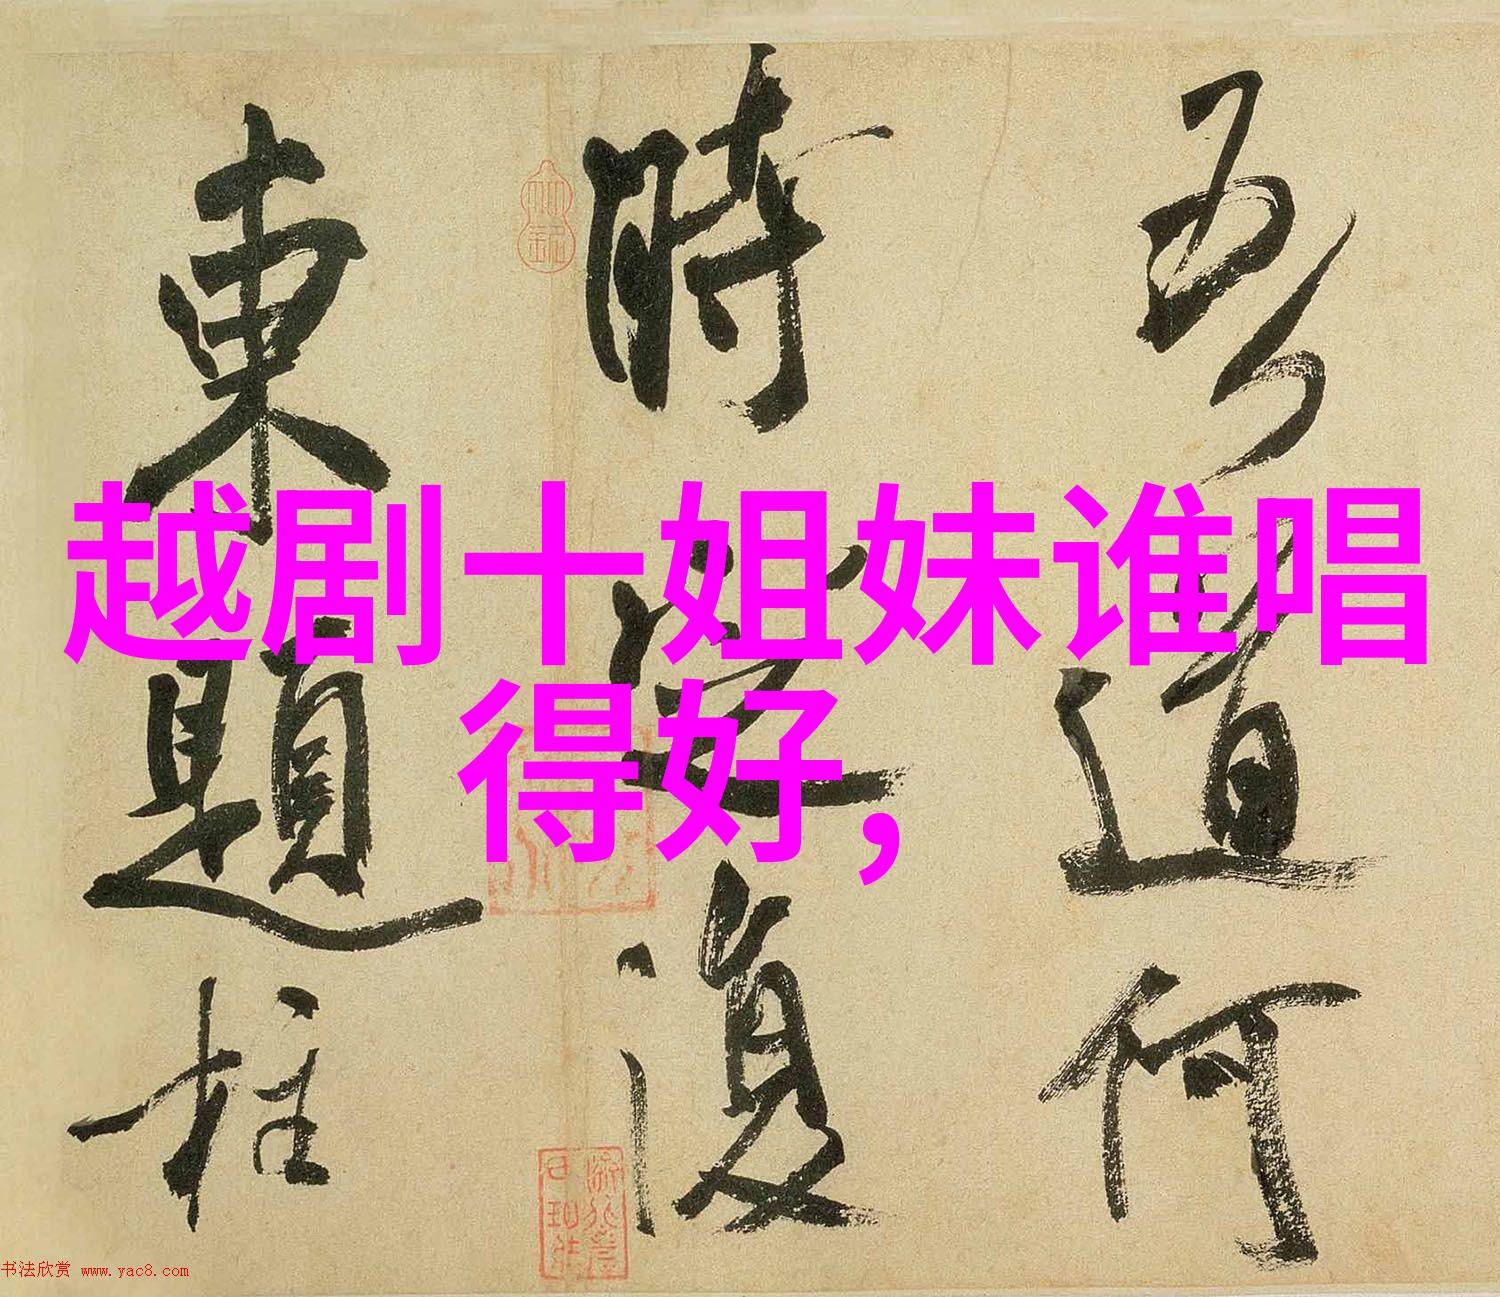 越剧十姐妹谁唱
得好,
吾道何
時定復
東題柱
书法欣赏 www.yac8.com